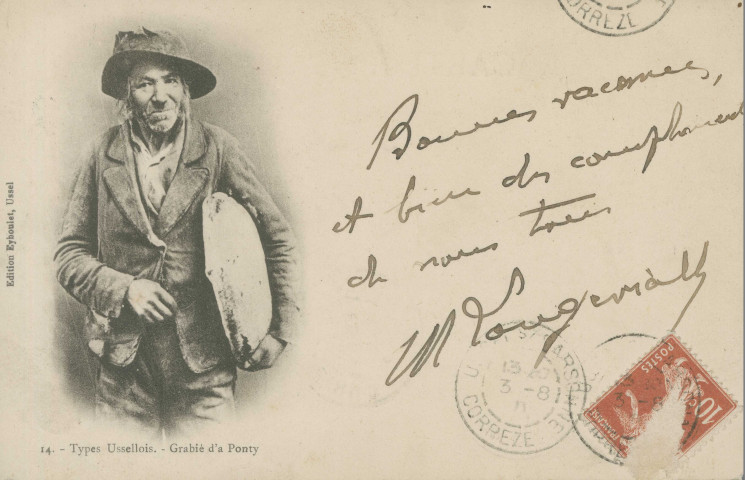 CORREZE
Bonnes vacances,
et bien des compliments
de nous tous
Edition Eyboulet, Ussel
13
3 -8
CORREZE
POSTES
10
14. - Types Ussellois. - Grabié d'a Ponty